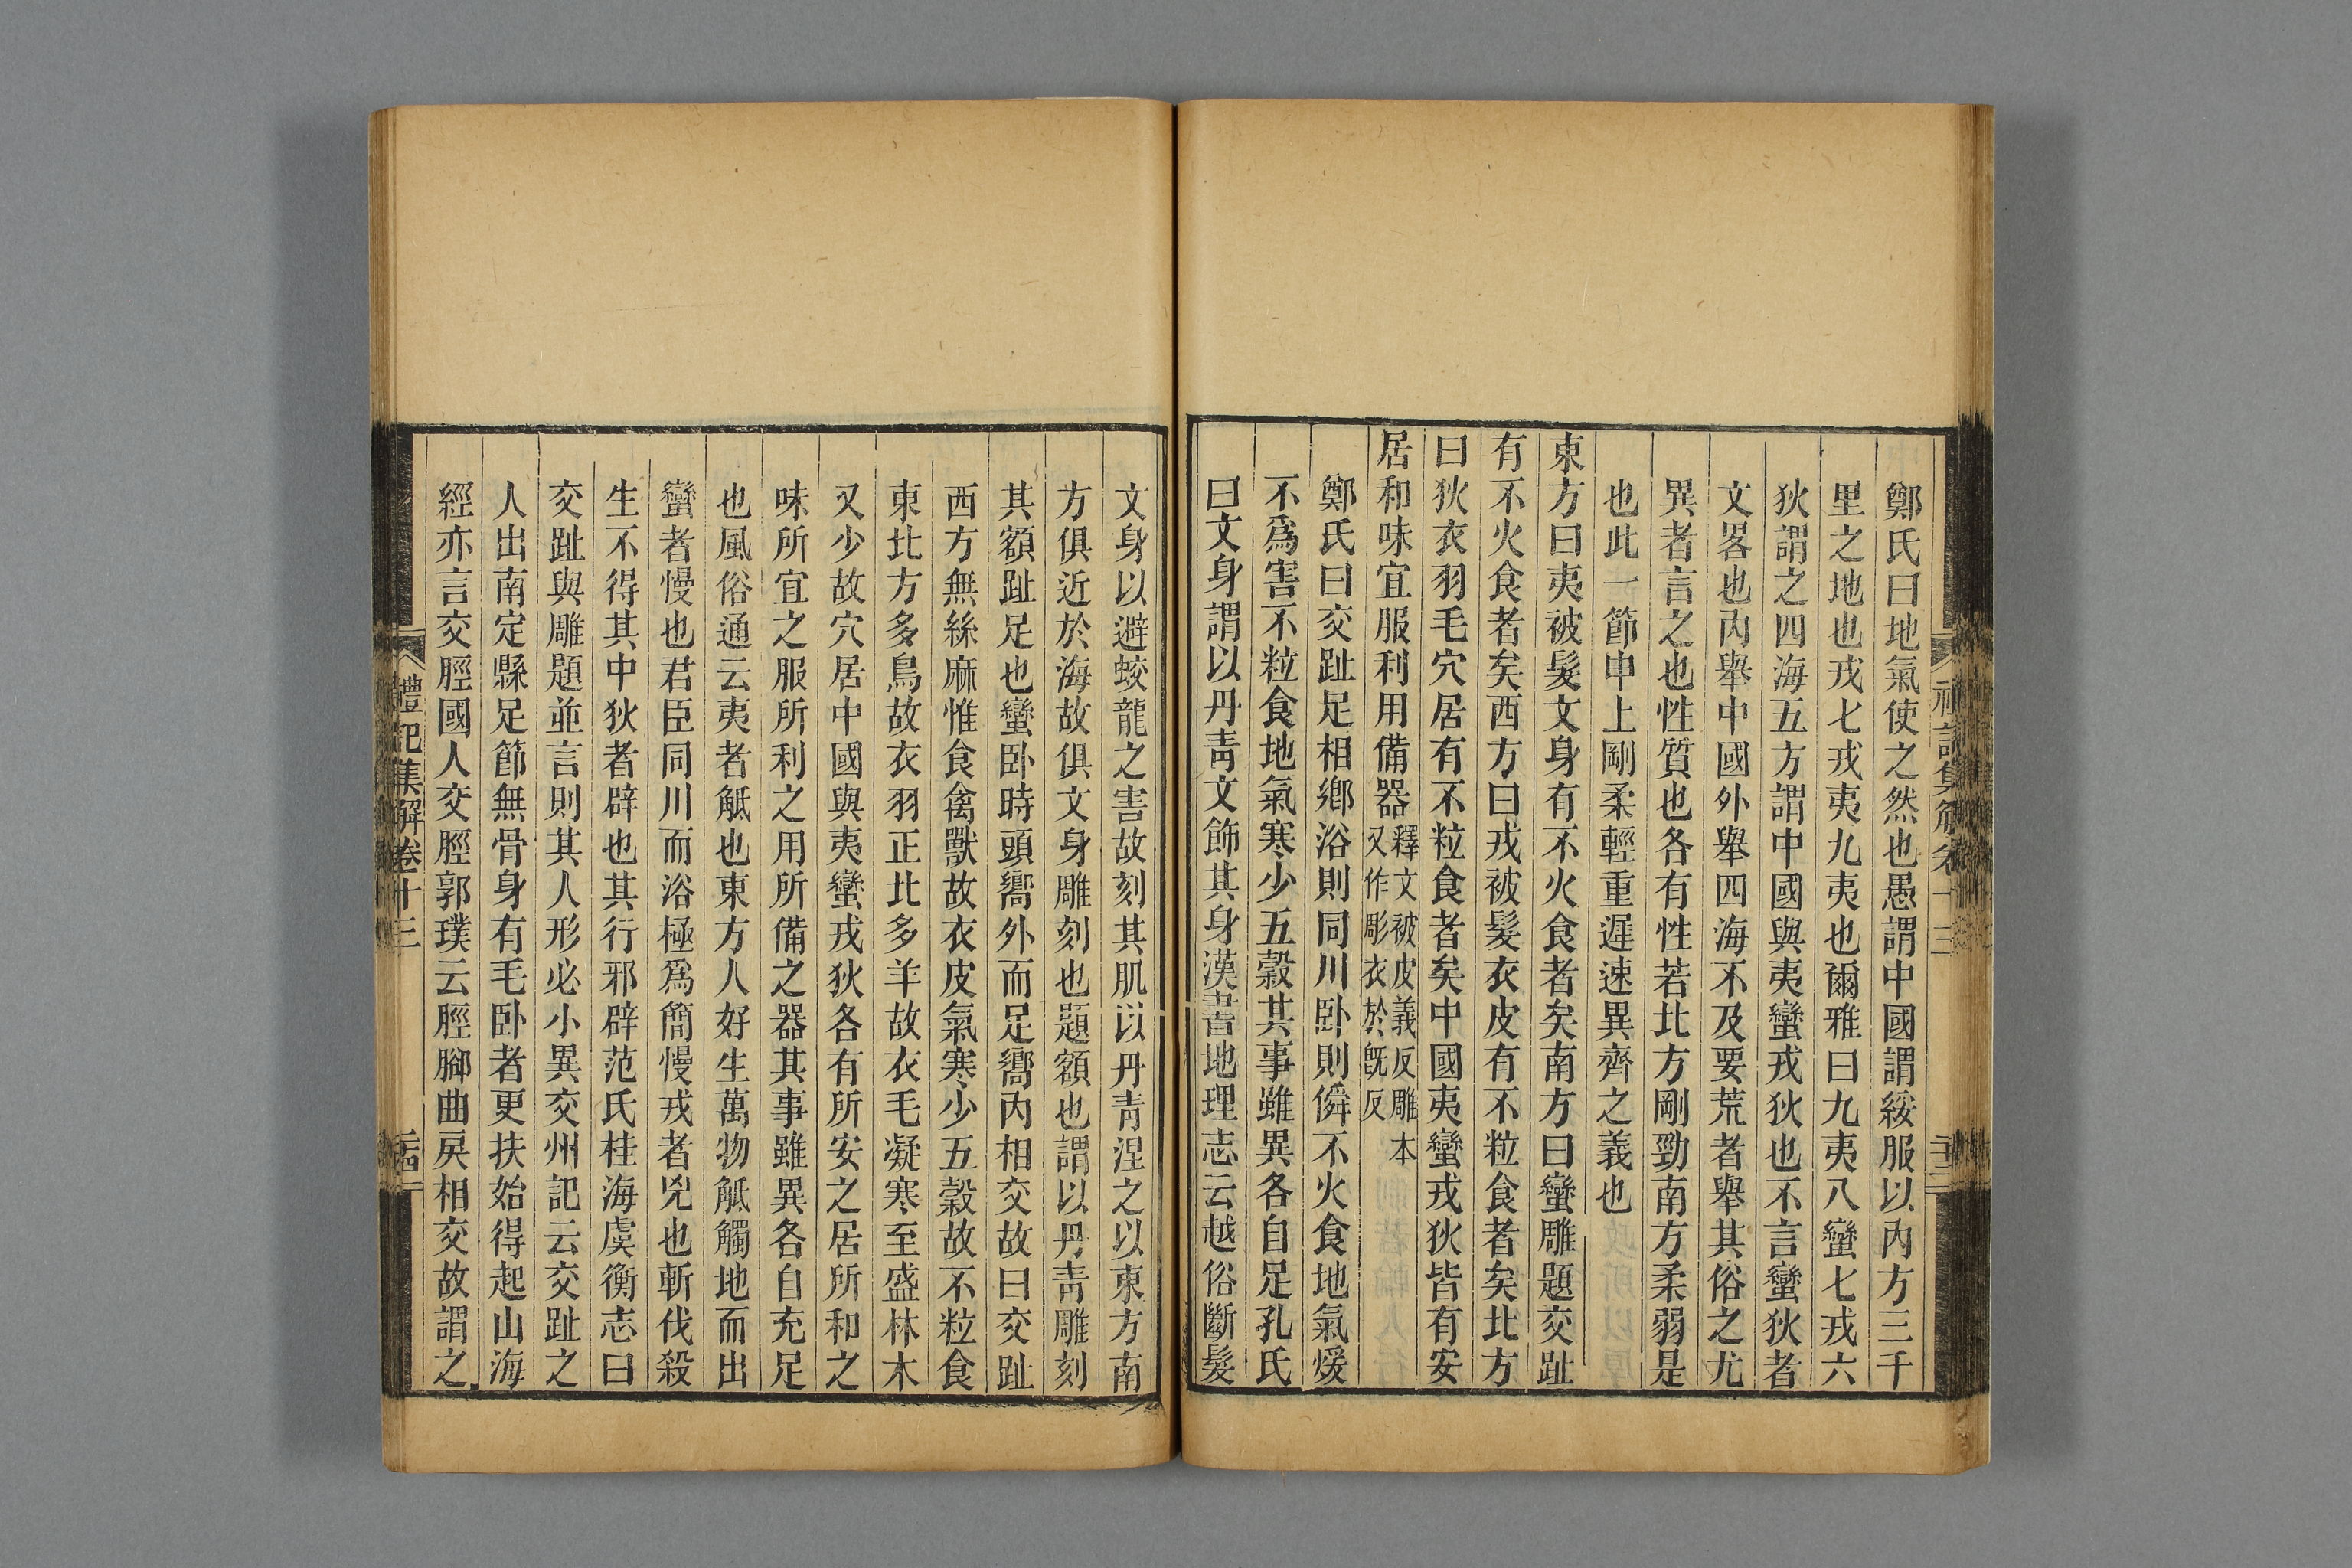 禮記集解卷十三
二十三
鄭氏曰地氣使之然也愚謂中國謂綏服以內方三千
里之地也戎七戎夷九夷也爾雅曰九夷八蠻七戎六
狄謂之四海五方謂中國與夷蠻戎狄也不言蠻狄者
文畧也內舉中國外舉四海不及要荒者舉其俗之尤
異者言之也性質也各有性若北方剛勁南方柔弱是
也此一節申上剛柔輕重遲速異齊之義也
東方曰夷被髮文身有不火食者矣南方曰蠻雕題交趾
有不火食者矣西方曰戎被髮衣皮有不粒食者矣北方
曰狄衣羽毛穴居有不粒食者矣中國夷蠻戎狄皆有安
居和味宜服利用備器釋文被皮義反雕本
又作彫衣於旣反
鄭氏曰交趾足相鄕浴則同川臥則僢不火食地氣煖
不爲害不粒食地氣寒少五穀其事雖異各自足孔氏
曰文身謂以丹靑文飾其身漢書地理志云越俗斷髮
文身以避蛟龍之害故刻其肌以丹靑涅之以東方南
方俱近於海故俱文身雕刻也題額也謂以丹靑雕刻
其額趾足也蠻臥時頭嚮外而足嚮內相交故曰交趾
西方無絲麻惟食禽獸故衣皮氣寒少五穀故不粒食
東北方多鳥故衣羽正北多羊故衣毛凝寒至盛林木
又少故穴居中國與夷蠻戎狄各有所安之居所和之
味所宜之服所利之用所備之器其事雖異各自充足
也風俗通云夷者觝也東方人好生萬物觝觸地而出
蠻者慢也君臣同川而浴極爲簡慢戎者兇也斬伐殺
生不得其中狄者辟也其行邪辟范氏桂海虞衡志曰
交趾與雕題並言則其人形必小異交州記云交趾之
人出南定縣足節無骨身有毛臥者更扶始得起山海
經亦言交脛國人交脛郭璞云脛腳曲戾相交故謂之
禮記集解卷十三
二十四